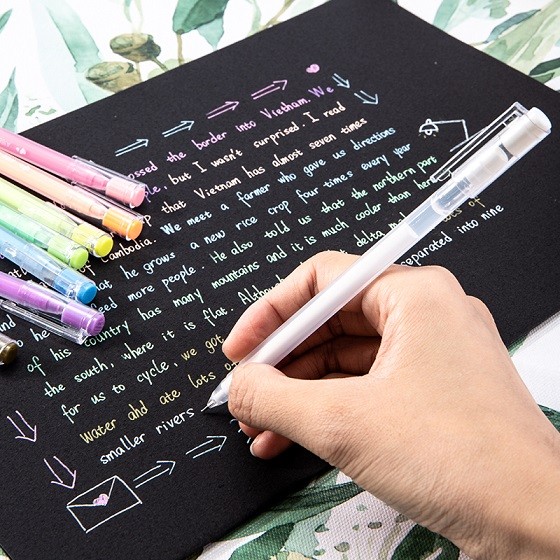 ossed the border into Vietnam. We
le, but I wasn't surprised. I read
that Vietnam has almost seven times
of Cambodia. We meet a farmer who gave us directions
that he grows a new rice crop four times every year
feed more people. He also told us that the northern part
of his country has many mountains and it is much cooler than here
the south, where it is flat. Although delta
for us to cycle, we got separated into nine
Water and ate lots of
smaller rivers